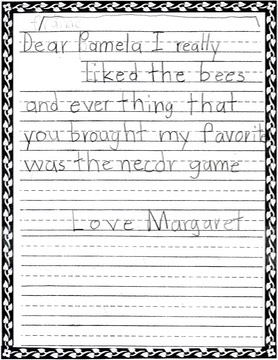 Dear Pamela I really
liked the bees
and ever thing that
you brought my favorite
was the necdr game
Love Margaret